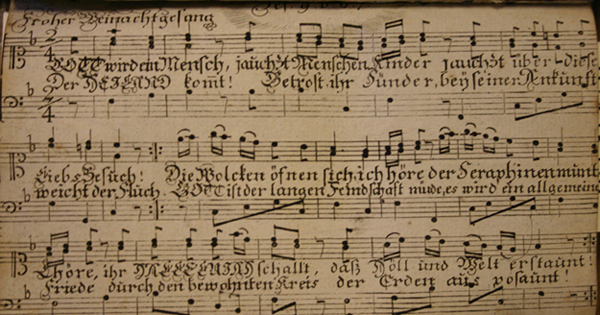 Froher Weinachtgesang
GOTT wird ein Mensch, jauchzt Menschen Kinder jauchzt über diese
Der HEILAND komt! Getrost ihr Sünder, bey seiner Ankunft
Liebs Gesuch! Die Wolcken öfnen sich, ich höre der Seraphinen munt
weicht der Fluch. GOTT ist der langen Feindschaft müde, es wird ein allgemeine
Chöre, ihr HALLELUIAH schallt, daß Höll und Welt erstaunt!
Friede durch den bewohnten Kreis der Erden aus posaunt!